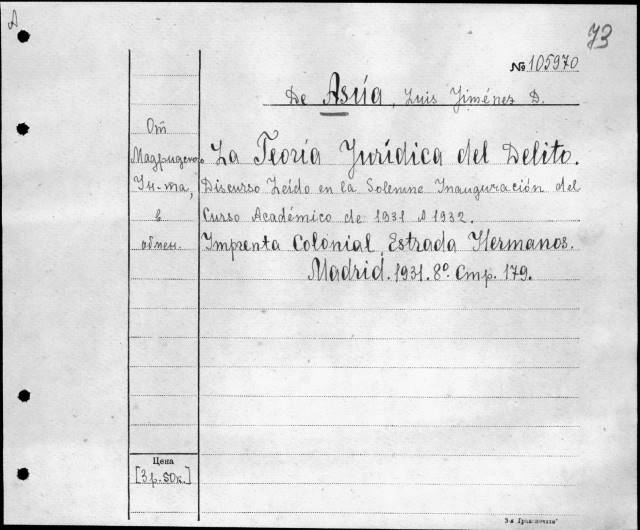 A
73
№ 105970
De Asúa, Luis Jiménez D.
От
Мадридского
Ун-та,
в
обмен.
La Teoría Jurídica del Delito.
Discurso Leído en la Solemne Inauguración del
Curso Académico de 1931 A 1932.
Imprenta Colonial, Estrada Hermanos.
Madrid. 1931. 8º. Cmp. 179.
Цена
[3 р. 50 к.]